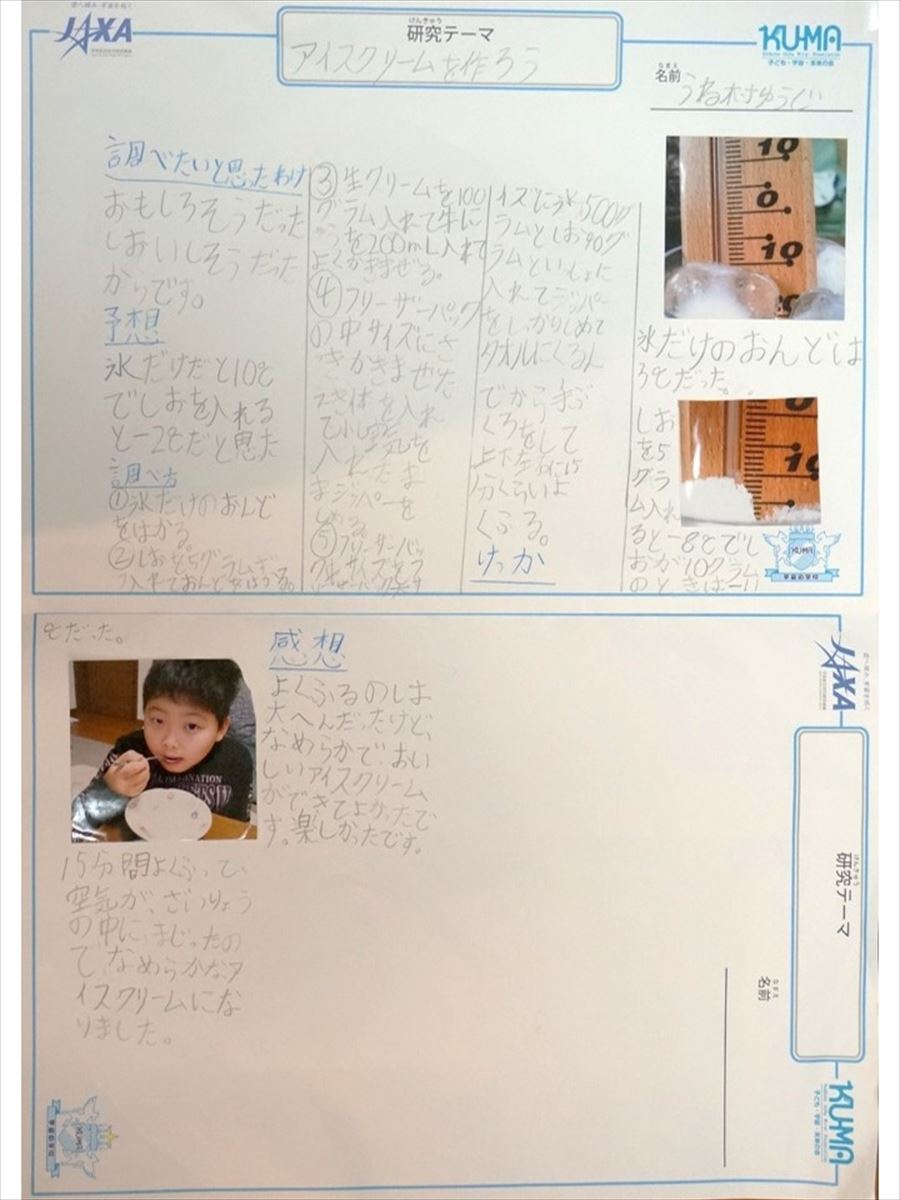 JAXA
研究テーマ
けんきゅう
アイスクリームを作ろう
KUMA
子ども・宇宙・未来の会
なまえ
名前
調べたいと思ったわけ
おもしろそうだった
しおいしそうだった
からです。
予想
氷だけだと10℃
でしおを入れる
と-2℃だと思た
調べ方
①氷だけのおんど
をはかる。
②しおを5グラムずつ
入れておんどをはかる。
③生クリームを100
グラム入れて牛に
うを200mL入れて
よくかきまぜる。
④フリーザーパック
の中サイズにさ
きかきまぜた
えき体を入れ
て小し空気を
入れたま
まジッパーを
しめる。
⑤フリーザーパッ
イズに氷500グ
ラムとしお40グ
ラムといっしょに
入れてジッパー
をしっかりしめて
タオルにくるん
でから手ぶ
くろをして
上下左右に15
分くらいよ
くふる。
けっか
10
0
10
氷だけのおんどは
3℃だった。
0
10
しお
を5
グラ
ム入れ
ると-8℃でし
おが10グラム
のときは-11
KUMA
宇宙の学校
℃だった。
15分間よくふって、
空気が、ざいりょう
の中に、まじったの
で、なめらかなア
イスクリームにな
りました。
感想
よくふるのは
大へんだったけど、
なめらかで、おい
しいアイスクリーム
ができてよかったで
す。楽しかったです。
JAXA
けんきゅう
研究テーマ
なまえ
名前
KUMA
子ども・宇宙・未来の会
KUMA
宇宙の学校